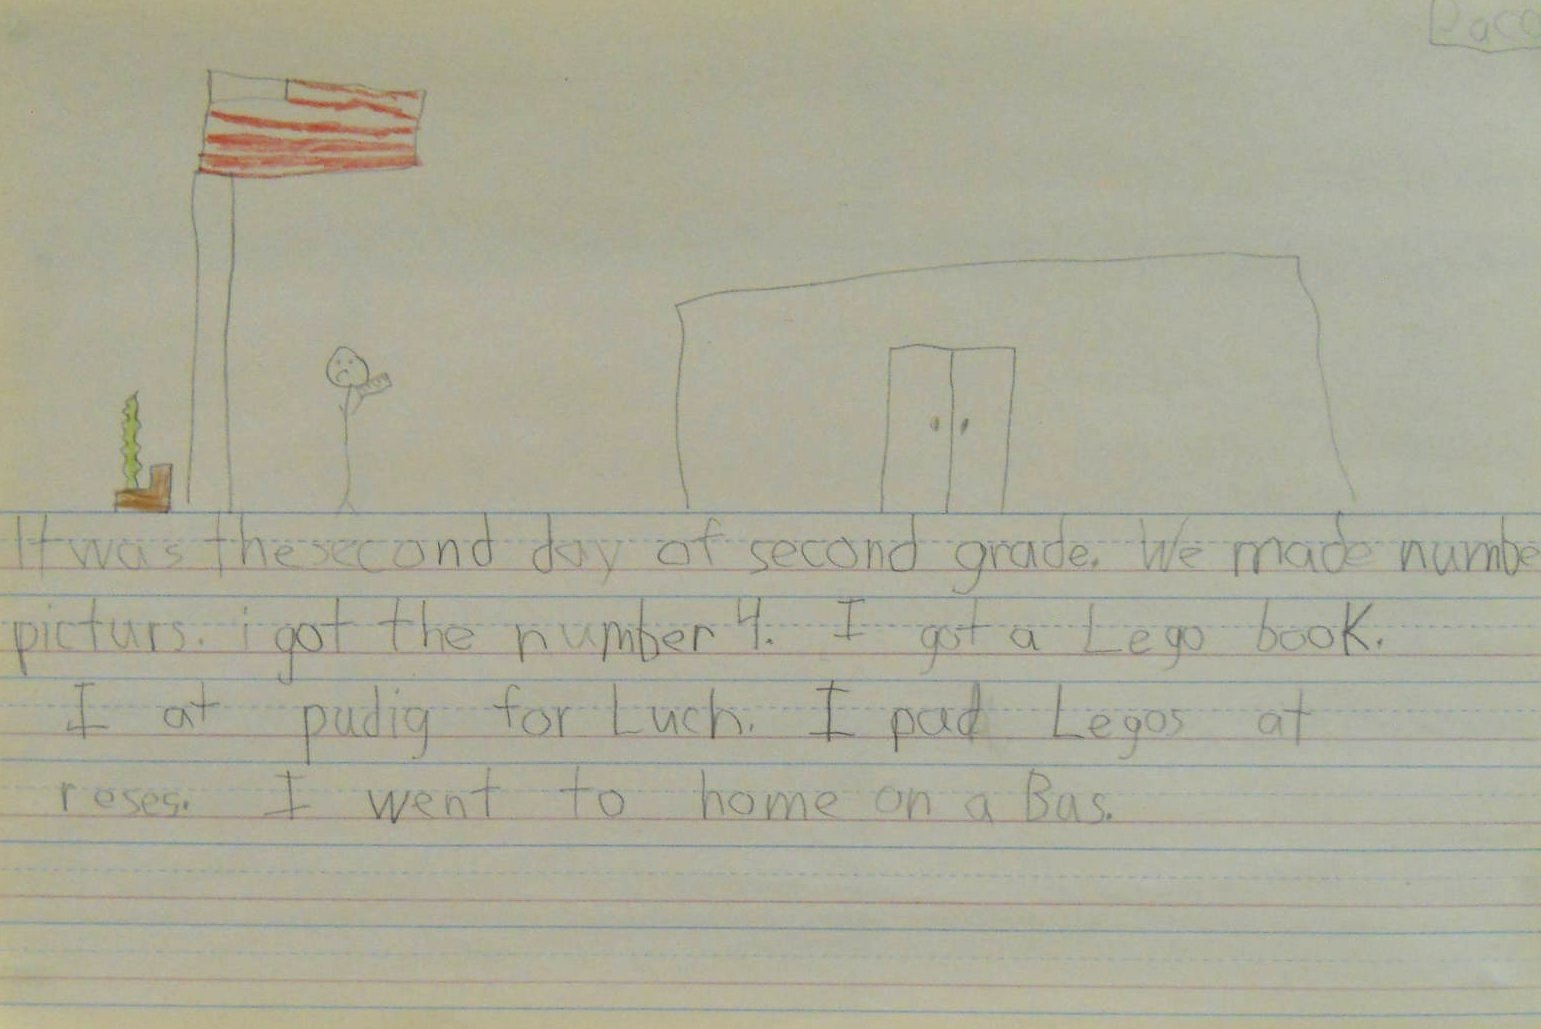 It was the second day of second grade. We made numbe
picturs. i got the number 4. I got a Lego book.
I at pudig for Luch. I pad Legos at
reses. I went to home on a Bus.